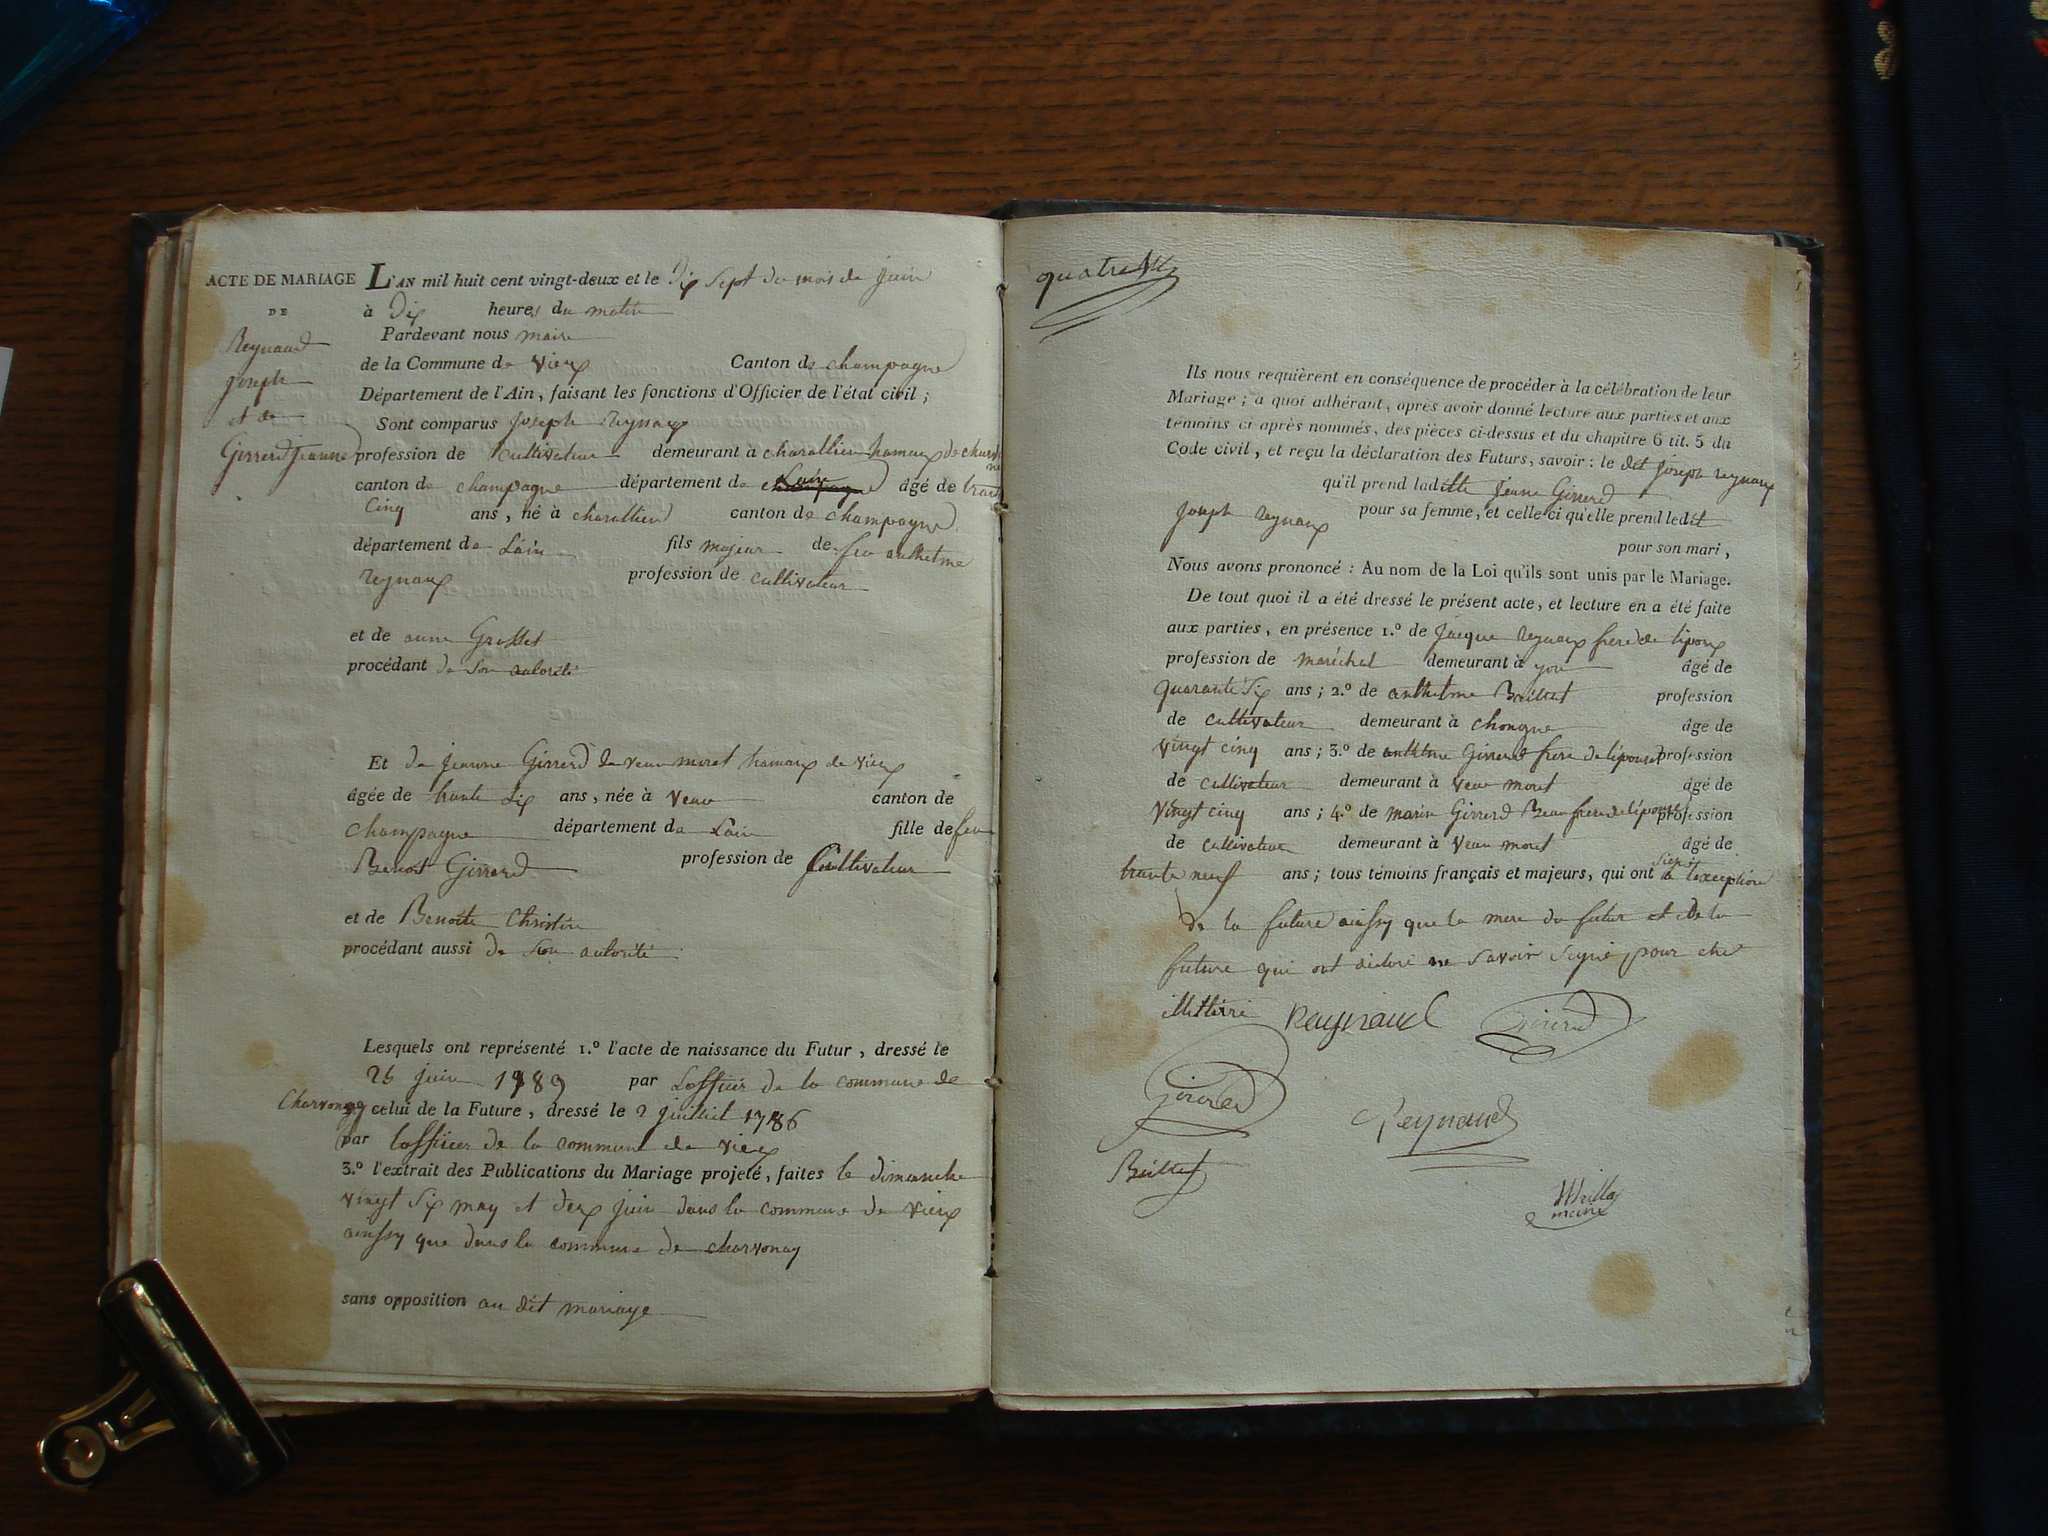 ACTE DE MARIAGE
DE
Reynaud
joseph
et de
Girrerd jeanne
L'AN mil huit cent vingt-deux et le Dix Sept du mois de juin
à Dix heures du matin
Pardevant nous maire
de la Commune de vieux Canton de champagne
Département de l'Ain, faisant les fonctions d'Officier de l'état civil;
Sont comparus joseph reynaux
profession de Cultivateur demeurant à charallien hamaux de
canton de champagne département de Lain âgé de
Cinq ans, né à charallien canton de champagne
département de Lain fils majeur de feu anthelme
reynaux profession de cultivateur
et de anne Grosset
procédant de son autorité
Et de jeanne Girrerd de veau moret hamaux de vieux
âgée de trante Six ans, née à veau canton de
champagne département de Lain fille de feu
Benoit Girrerd profession de Cultivateur
et de Benoite Christin
procédant aussi de son autorité
Lesquels ont représenté 1.º l'acte de naissance du Futur, dressé le
26 juin 1789 par Loffiier de la commune de
Charvonay celui de la Future, dressé le 2 juilliel 1786
par loffiier de la commune de vieux
3.º l'extrait des Publications du Mariage projeté, faites le dimanche
vingt Six may et deux juin dans la commune de vieux
ainssy que dans la commune de charvonay
sans opposition au dit mariage
quatre
Ils nous requièrent en conséquence de procéder à la célébration de leur
Mariage; a quoi adhérant, après avoir donné lecture aux parties et aux
témoins ci après nommés, des pièces ci-dessus et du chapitre 6 tit. 5 du
Code civil, et reçu la déclaration des Futurs, savoir: le dit joseph reynaux
qu'il prend laditte jeane Girrerd
pour sa femme, et celle ci qu'elle prend ledit
joseph reynaux pour son mari,
Nous avons prononcé: Au nom de la Loi qu'ils sont unis par le Mariage.
De tout quoi il a été dressé le présent acte, et lecture en a été faite
aux parties, en présence 1.º de jacque reynaux frere de lepoux
profession de maréchal demeurant à yon âgé de
quarante Six ans; 2.º de anthelme Baillet profession
de cultivateur demeurant à chongne âgé de
vingt cinq ans; 3.º de anthelme Girrerd frere de lépouse profession
de cultivateur demeurant à veau moret âgé de
vingt cinq ans; 4.º de marin Girrerd Beau frere de lépouse profession
de cultivateur demeurant à veau moret âgé de
trante neuf ans; tous témoins français et majeurs, qui ont signé a lexception
de la future ainssy que la mere du futur et de la
future qui ont déclaré ne savoir signé, pour etre
illettéré Reynaud Girerd
Girerd
Reynaud
maire